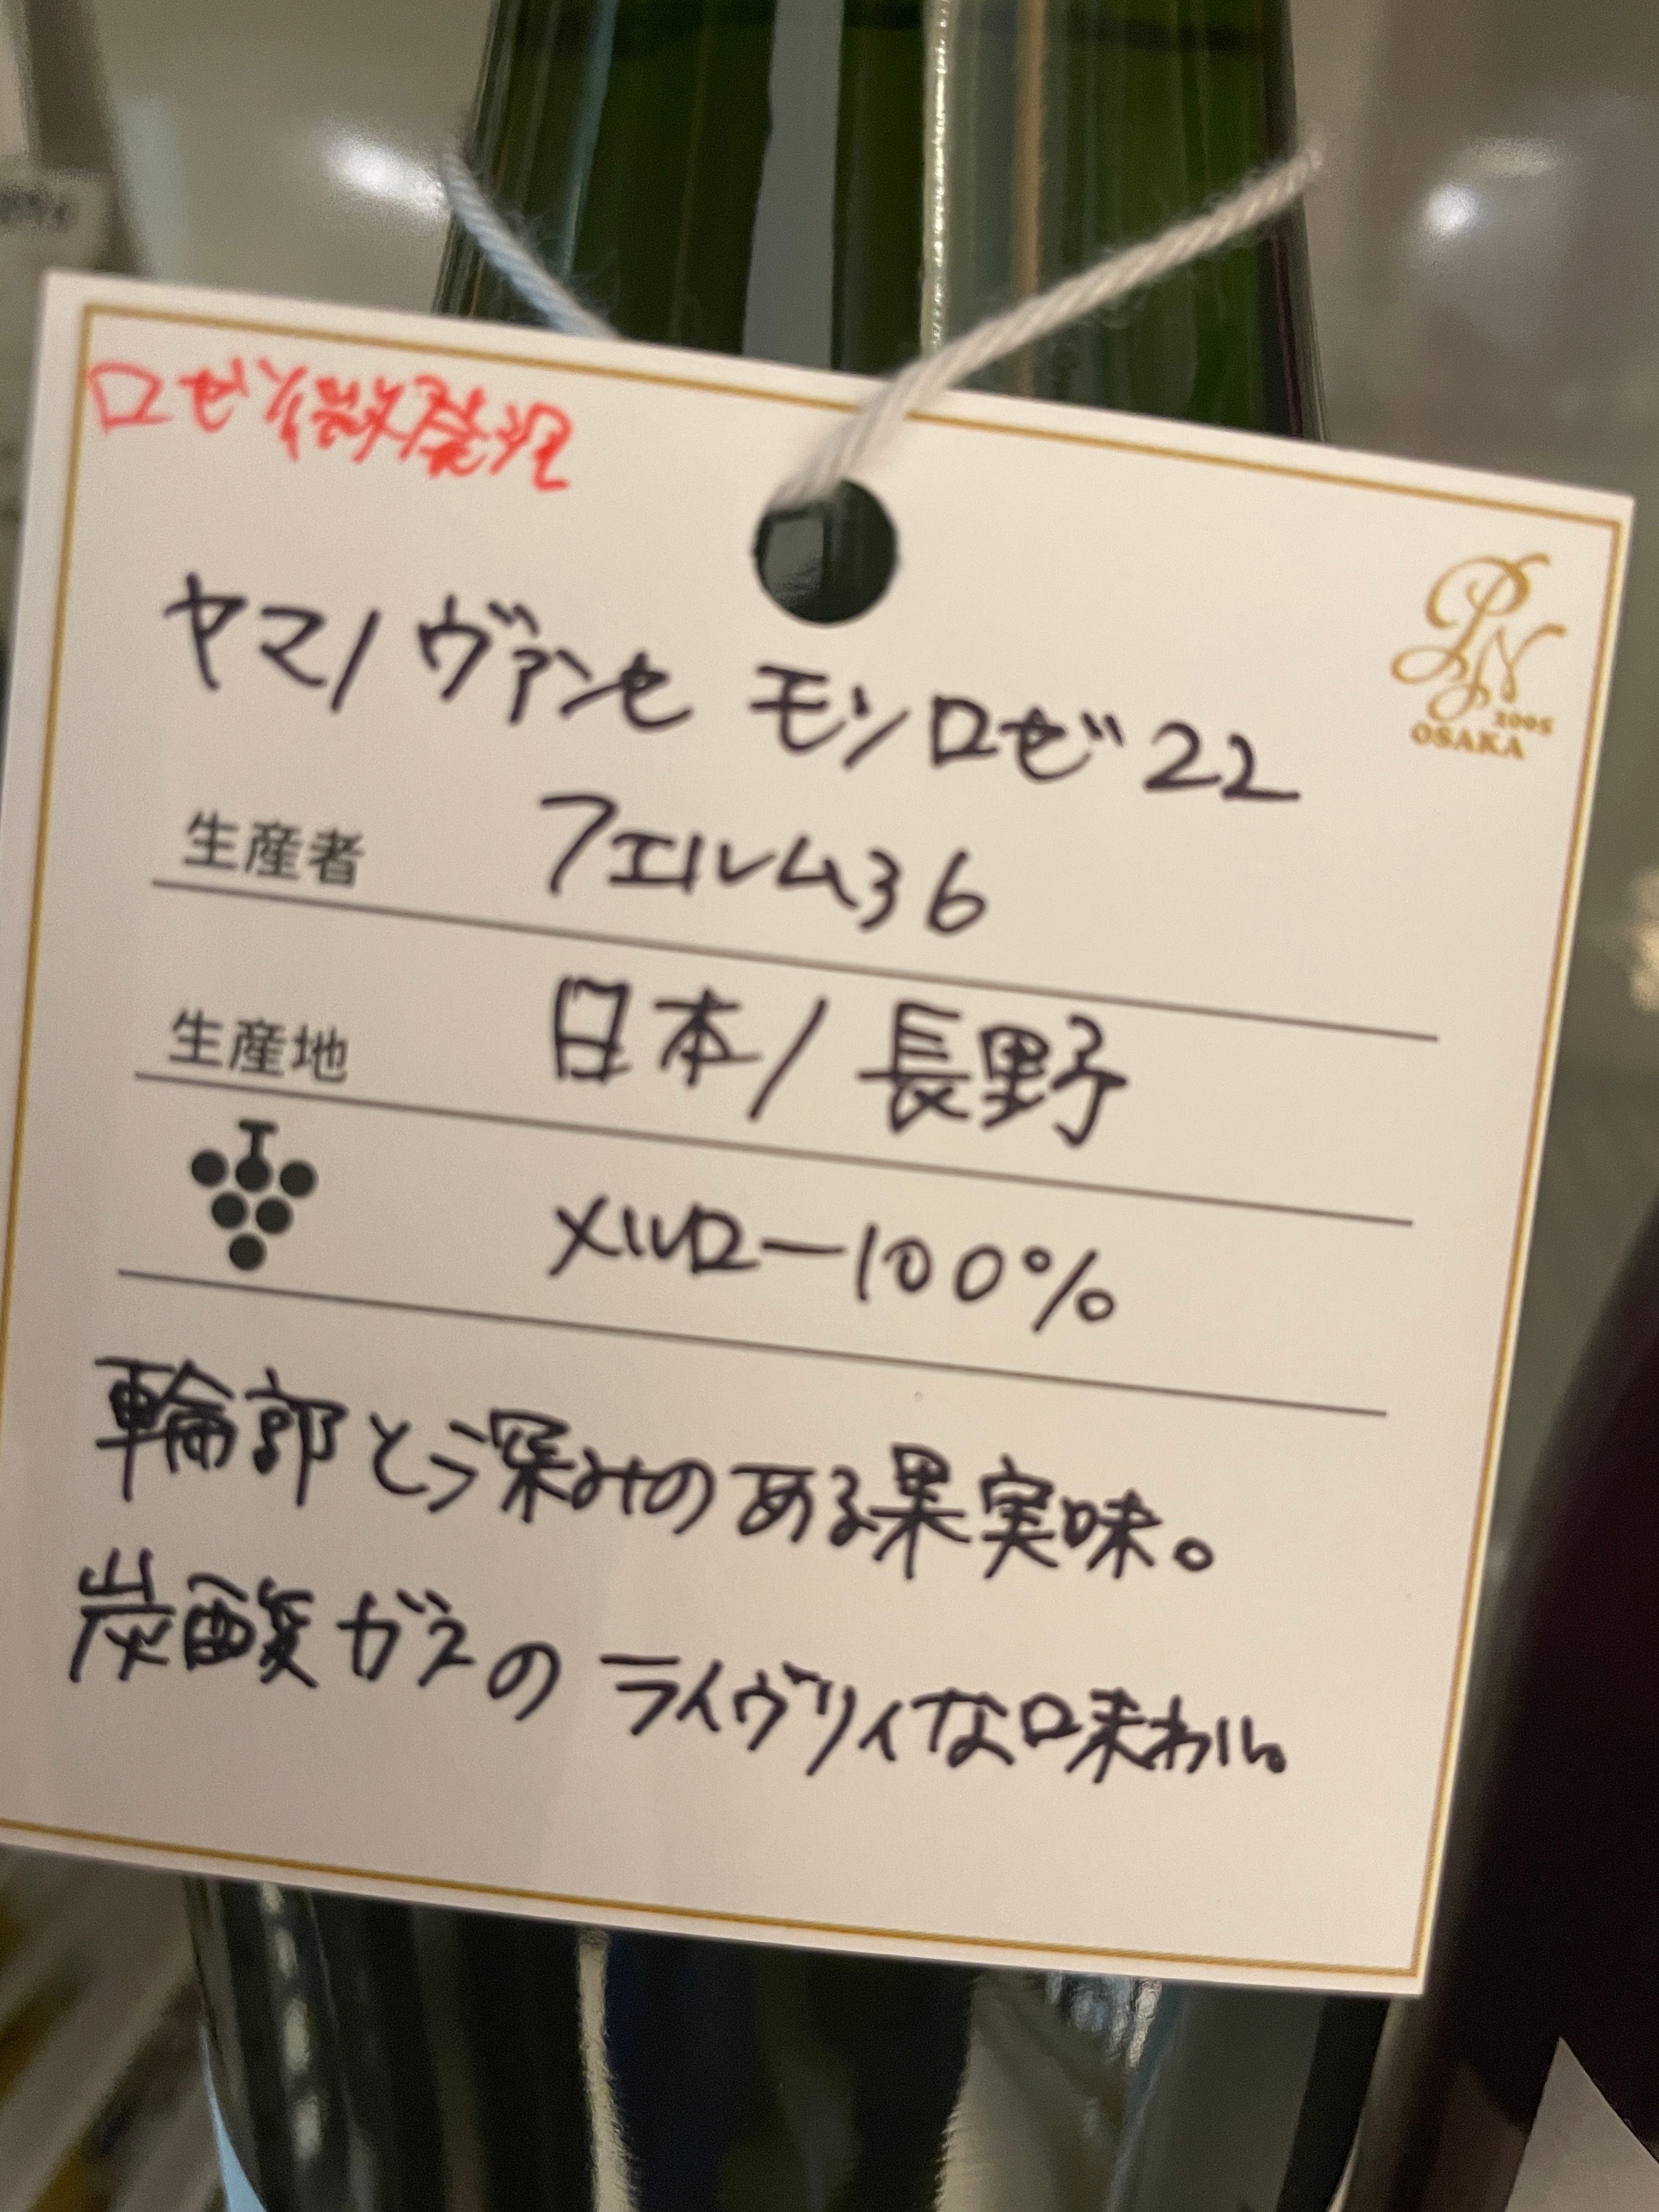 ロゼ微発泡
PN
2005
OSAKA
ヤマノヴァンセ モンロゼ22
生産者 フェルム36
生産地 日本/長野
メルロー100%
輪郭と深みのある果実味。
炭酸ガスのライヴリィな口味わい。